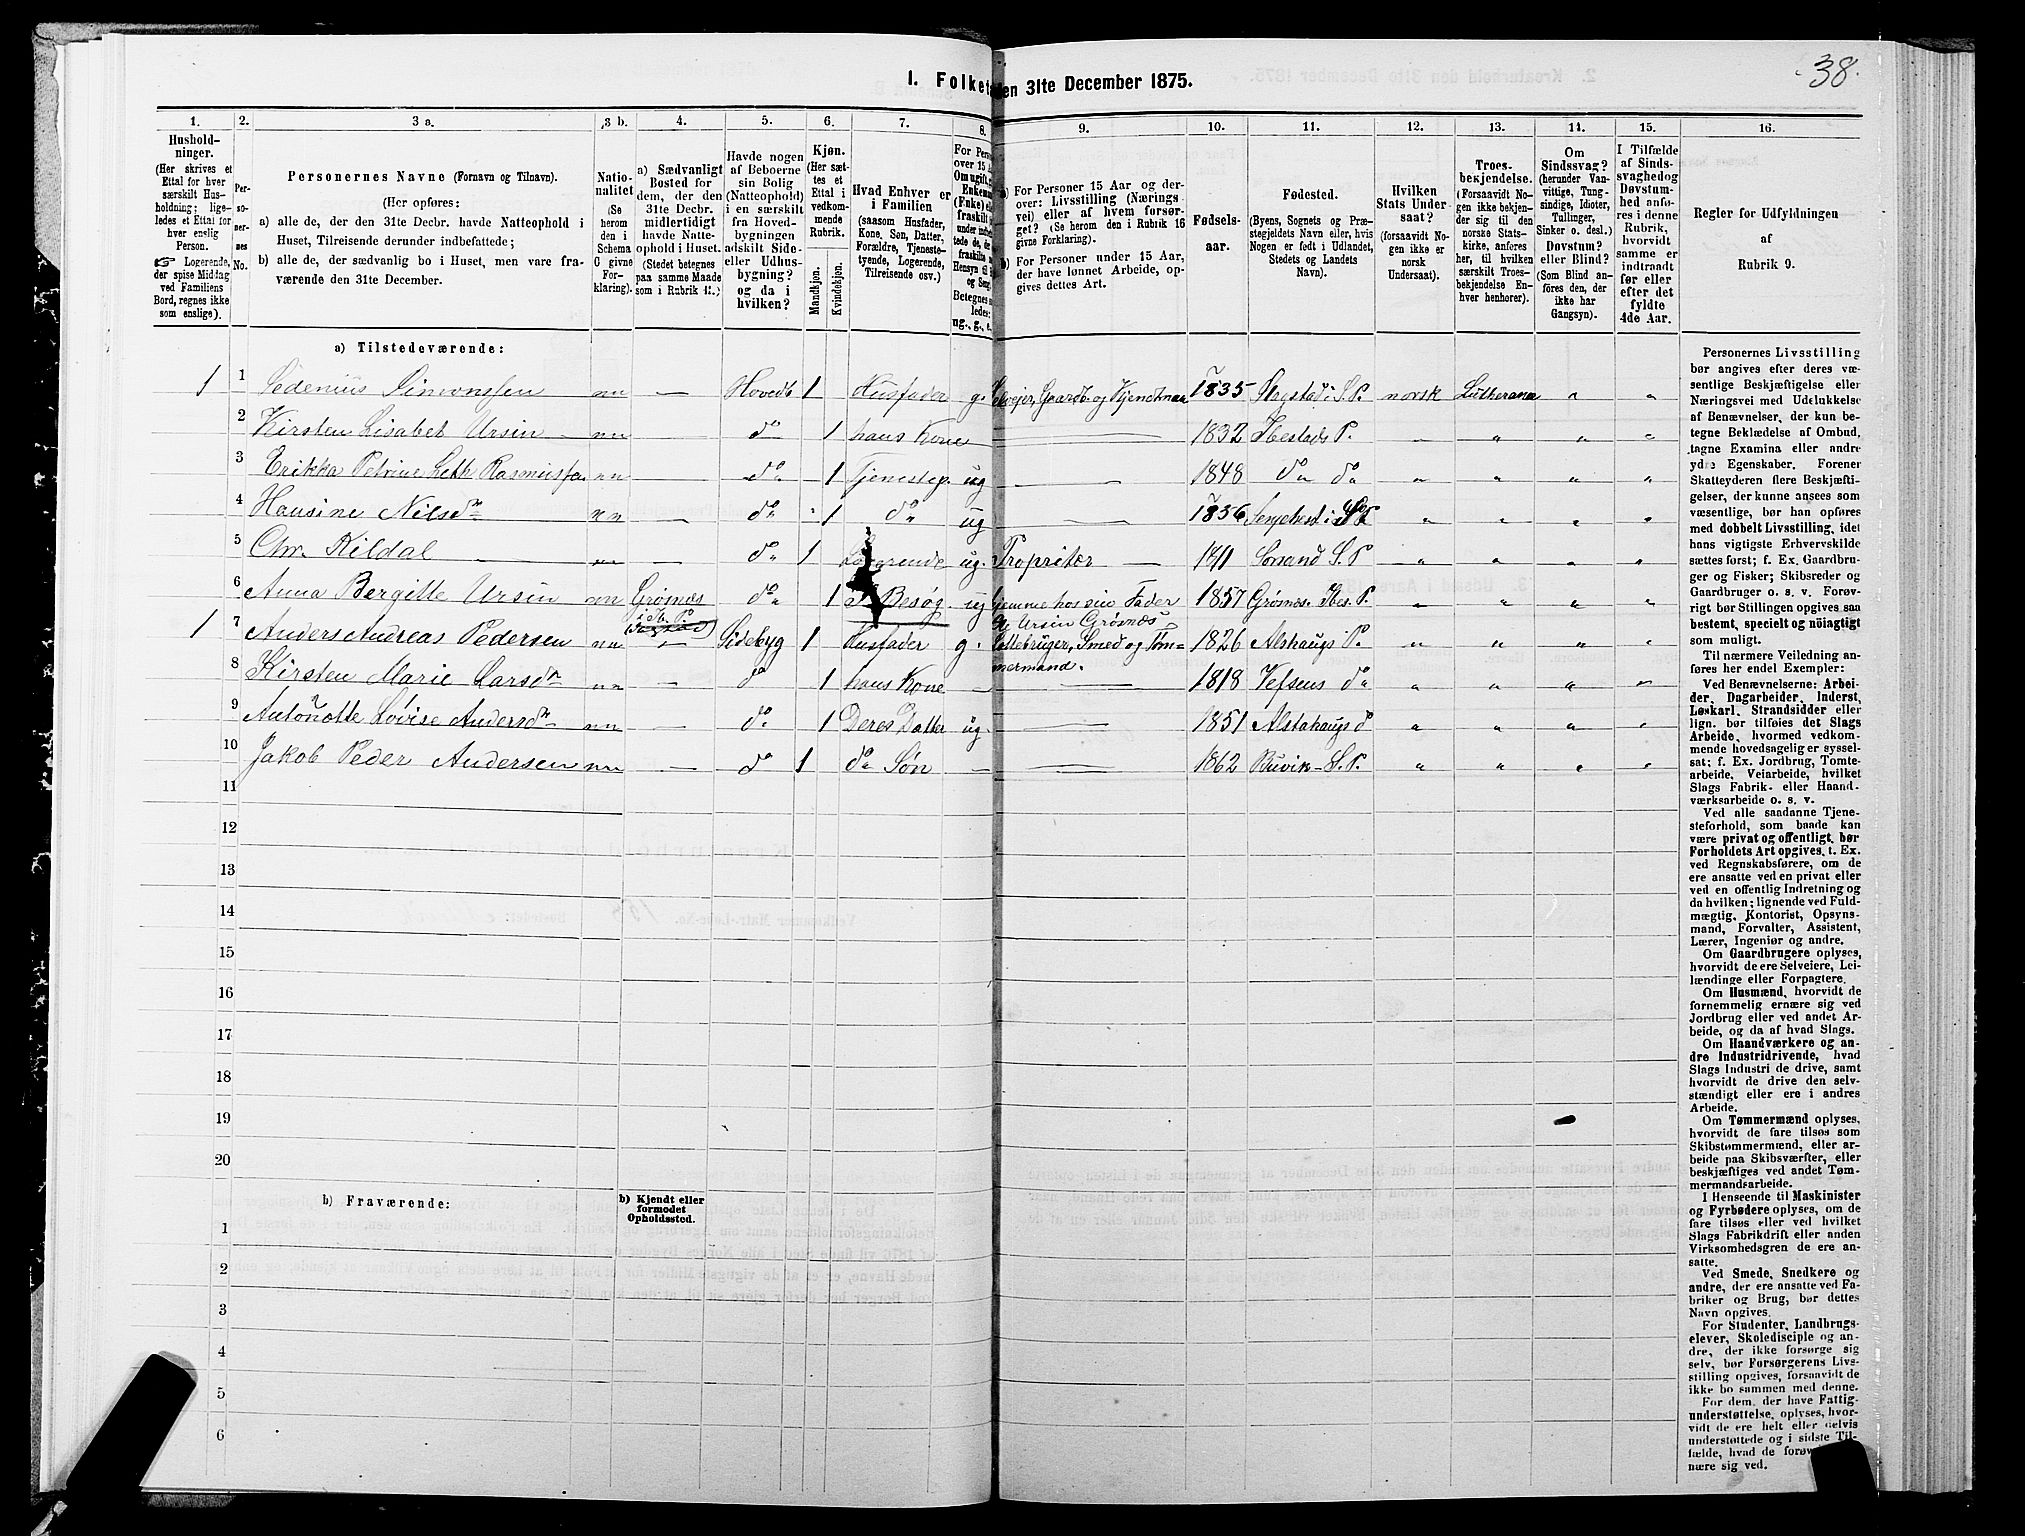 38.
I. Folket
en 31te December 1875.
1. 2. 3 a. 3 b. 4. 5. 6. 7. 8. 9. 10. 11. 12. 13. 14. 15. 16.
Hushold-
ninger.
(Her skrives et
Ettal for hver
særskilt Hus-
holdning; lige-
ledes et Ettal for
hver enslig
Person.
☞ Logerende,
der spise Middag
ved Familiens
Bord, regnes ikke
som enslige).
Per-
so-
ner-
nes
No.
Personernes Navne (Fornavn og Tilnavn).
(Her opføres:
a) alle de, der den 31te Decbr. havde Natteophold i
Huset, Tilreisende derunder indbefattede;
b) alle de, der sædvanlig bo i Huset, men vare fra-
værende den 31te December.
Natio-
nalitet
(Se
herom
den i
Schema
C givne
For-
klaring).
a) Sædvanligt
Bosted for
dem, der den
31te Decbr.
midlertidigt
havde Natte-
ophold i Huset.
(Stedet betegnes
paa samme Maade
som i Rubrik 11.)
Havde nogen
af Beboerne
sin Bolig
(Natteophold)
i en særskilt
fra Hoved-
bygningen
adskilt Side-
eller Udhus-
bygning?
og da i
hvilken?
Kjøn.
(Her sæt-
tes et
Ettal i
vedkom-
mende
Rubrik.
Mandkjøn.
Kvindekjøn.
Hvad Enhver er
i Familien
(saasom Husfader,
Kone, Søn, Datter,
Forældre, Tjeneste-
tyende, Logerende,
Tilreisende osv.)
For Pers
over 15 A
Om ugift,
Enkem
(Enke) el
fraskilt
Betegnes
ledes:
ug., g., e.
a) For Personer 15 Aar og der-
over: Livsstilling (Nærings-
vei) eller af hvem forsør-
get (Se herom den i Rubrik 16
givne Forklaring).
b) For Personer under 15 Aar,
der have lønnet Arbeide, op-
gives dettes Art.
Fødsels-
aar.
Fødested.
(Byens, Sognets og Præ-
stegjeldets Navn eller, hvis
Nogen er født i Udlandet,
Stedets og Landets
Navn).
Hvilken
Stats Under
saat?
(forsaavidt No-
gen ikke er
norsk
Undersaat).
Troes-
bekjendelse.
(Forsaavidt No-
gen ikke bekjen-
der sig til den
norske Stats-
kirke, anføres
her, til hvilken
særskilt Troes-
bekjendelse En-
hver henhorer).
Om
Sindssvag?
(herunder Van-
vittige, Tung-
sindige, Idioter,
Tullinger,
Sinker o. desl.)
Døvstum?
eller Blind?
(Som Blind an-
føres den, der
ikke har
Gangsyn).
I Tilfælde
af Sinds-
svaghed og
Døvstum-
hed anfø-
res i denne
Rubrik,
hvorvidt
samme er
indtraadt
før eller
efter det
fyldte
4de Aar.
Regler før Udfyldningen
af
Rubrik 9.
a) Tilstedeværende:
1 1 Sedenius Simonssen nn — Hovedb 1 Husfader g. Selveier, Gaardb. og 1835 S. P. norsk Lutheraner " "
2 Kirsten Lisabet Ursin nn do 1 hans Kone — 1832 Ibestads P. " " " "
3 Erikka Petrine Rasmussen nn do 1 Tjenestep. ug — 1848 do do " " " "
4 Hansine Nilsdr nn — do 1 do ug — 1856 " " " "
5 Chr. Kildal nn — do 1 Logerende ug. Propritær 1811 S. P. " " " "
6 Anna Bergitte Ursin nn Grøsnes do 1 Besøg ug hjemme hos sin Fader 1857 Grøsnes. Ibes. P. " " " "
Ursin Grøsnes
1 7 Anders Andreas Pedersen nn — Sidebyg 1 Husfader g. Smed og Tøm- 1826 Alstahaugs P. " " " "
mermand.
8 Kirsten Marie Larsdr nn — do 1 hans Kone — 1818 Vefsens do " " " "
9 Antonette Lovise Andersdr nn — do 1 Deres Datter ug. 1851 Alstahaugs do " " " "
10 Jakob Peder Andersen nn — do 1 do Søn — 1862 Buvik S. P. " " " "
11
12
13
14
15
16
17
18
19
20
b) Fraværende:
b) Kjendt eller
formodet
Opholdssted.
1
2
3
4
5
6
Personernes Livsstilling
bør angives efter deres væ-
sentlige Beskjæftigelse eller
Næringsvei med Udelukkelse
af Benævnelser, der kun be-
tegne Beklædelse af Ombud,
tagne Examina eller andre
ydre Egenskaber. Forener
Skatteyderen flere Beskjæfti-
gelser, der kunne ansees som
væsentlige, bør han opføres
med dobbelt Livsstilling, idet
hans vigtigste Erhvervskilde
sættes først; f. Ex. Gaardbru-
ger og Fisker; Skibsreder og
Gaardbruger o. s. v. Forøv-
rigt bør Stillingen opgives saa
bestemt, specielt og nöiagtigt
som muligt.
Til nærmere Veiledning an-
føres her endel Exempler:
Ved Benævnelserne: Arbei-
der, Dagarbeider, Inderst,
Løskarl, Strandsidder eller
lign. bør tilføies det Slags
Arbeide, hvormed vedkom-
mende hovedsagelig er syssel-
sat; f. Ex. Jordbrug, Tomte-
arbeide, Veiarbeide, hvilket
Slags Fabrik- eller Haand-
værksarbeide o. s. v.
Ved alle saadanne Tjene-
steforhold, som baade kan
være privat og offentligt, bør
Forholdets Art opgives, t. Ex.
ved Regnskabsførere, om de
ere ansatte ved en privat eller
ved en offentlig Indretning og
da hvilken; lignende ved Fuld-
mægtig, Kontorist, Opsyns-
mand, Forvalter, Assistent,
Lærer, Ingeniør og andre.
Om Gaardbrugere oplyses,
hvorvidt de ere Selveiere, Lei-
lændinge eller Forpagtere.
Om Husmænd, hvorvidt de
fornemmelig ernære sig ved
Jordbrug eller ved andet Ar-
beide, og da af hvad Slags.
Om Haandværkere og an-
dre Industridrivende, hvad
Slags Industri de drive, samt
hvorvidt de drive den selv-
stændigt eller ere i andres
Arbeide.
Om Tømmermænd oplyses,
hvorvidt de fare tilsøs som
Skibstømmermænd, eller ar-
beide paa Skibsværfter, eller
beskjæftiges ved andet Tøm-
mermandsarbeide.
I Henseende til Maskinister
og Fyrbødere oplyses, om de
fare tilsøs eller ved hvilket
Slags Fabrikdrift eller anden
Virksomhedsgren de ere an-
satte.
Ved Smede, Snedkere og
andre, der ere ansatte ved Fa-
briker og Brug, bør dettes
Navn opgives.
For Studenter, Landbrugs-
elever, Skoledisciple og an-
dre, der ikke forsørge sig
selv, bør Forsørgerens Livs-
stilling opgives, forsaavidt de
ikke bo sammen med denne.
For dem, der have Fattig-
understøttelse, oplyses, hvor-
vidt de ere helt eller delvis
understøttede og i sidste Til-
fælde, hvad de forøv
nære sig ved.